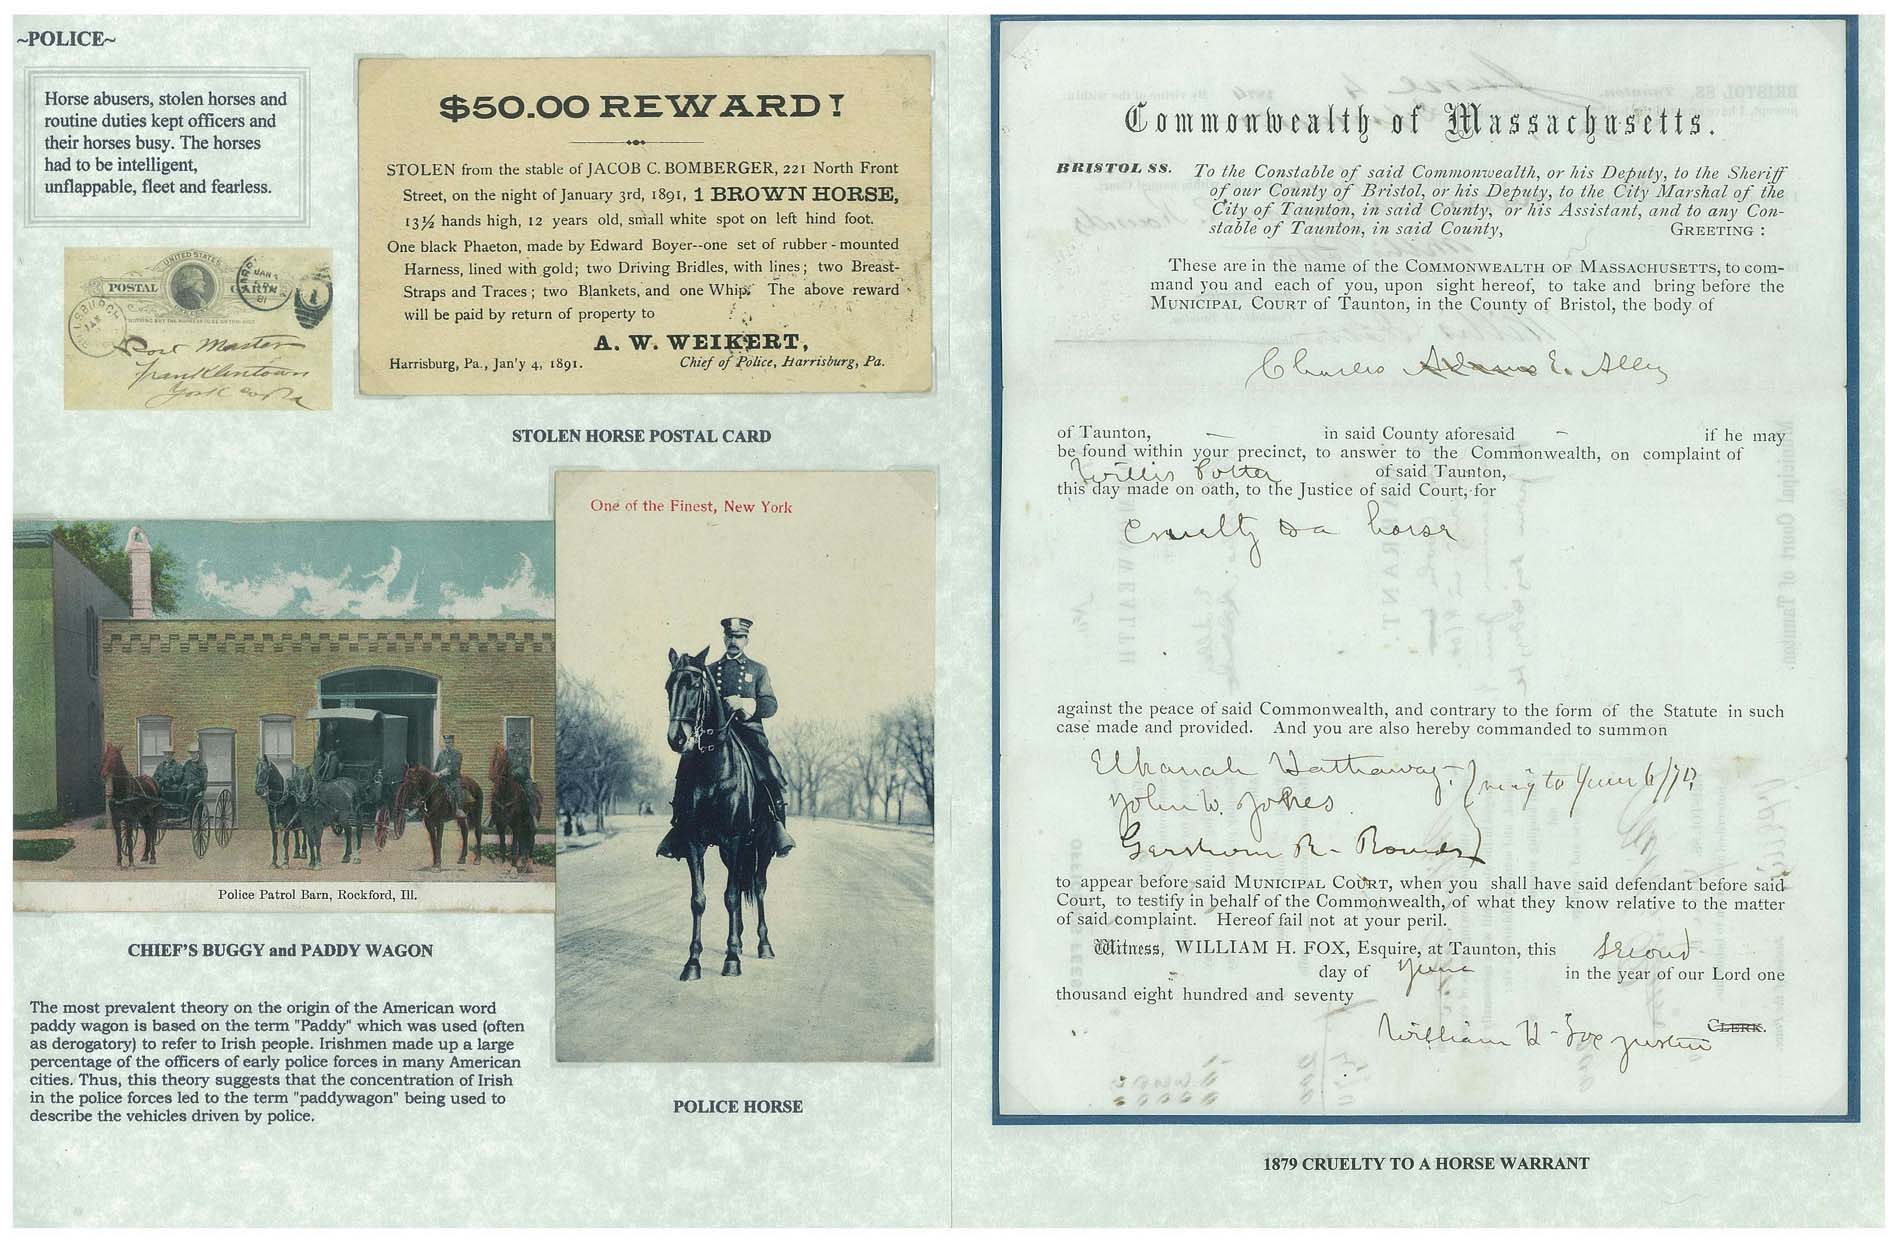 ~POLICE~
Horse abusers, stolen horses and
routine duties kept officers and
their horses busy. The horses
had to be intelligent,
unflappable, fleet and fearless.
$50.00 REWARD!
STOLEN from the stable of JACOB C. BOMBERGER, 221 North Front
Street, on the night of January 3rd, 1891, 1 BROWN HORSE,
13½ hands high, 12 years old, small white spot on left hind foot.
One black Phaeton, made by Edward Boyer--one set of rubber-mounted
Harness, lined with gold; two Driving Bridles, with lines; two Breast-
Straps and Traces; two Blankets, and one Whip. The above reward
will be paid by return of property to
A. W. WEIKERT,
Harrisburg, Pa., Jan'y 4, 1891. Chief of Police, Harrisburg, Pa.
UNITED STATES
POSTAL CARD
NOTHING BUT THE ADDRESS TO BE ON THIS SIDE
Post Master
Franklintown
York Co Pa
STOLEN HORSE POSTAL CARD
Police Patrol Barn, Rockford, Ill.
CHIEF'S BUGGY and PADDY WAGON
The most prevalent theory on the origin of the American word
paddy wagon is based on the term "Paddy" which was used (often
as derogatory) to refer to Irish people. Irishmen made up a large
percentage of the officers of early police forces in many American
cities. Thus, this theory suggests that the concentration of Irish
in the police forces led to the term "paddywagon" being used to
describe the vehicles driven by police.
One of the Finest, New York
POLICE HORSE
Commonwealth of Massachusetts.
BRISTOL SS. To the Constable of said Commonwealth, or his Deputy, to the Sheriff
of our County of Bristol, or his Deputy, to the City Marshal of the
City of Taunton, in said County, or his Assistant, and to any Con-
stable of Taunton, in said County, GREETING:
These are in the name of the COMMONWEALTH OF MASSACHUSETTS, to com-
mand you and each of you, upon sight hereof, to take and bring before the
MUNICIPAL COURT of Taunton, in the County of Bristol, the body of
Charles E. Alley
of Taunton, in said County aforesaid if he may
be found within your precinct, to answer to the Commonwealth, on complaint of
Willis Potter of said Taunton,
this day made on oath, to the Justice of said Court, for
Cruelty to a horse
against the peace of said Commonwealth, and contrary to the form of the Statute in such
case made and provided. And you are also hereby commanded to summon
Elkanah Hathaway
John W. Jones
Gershom R.
to appear before said MUNICIPAL COURT, when you shall have said defendant before said
Court, to testify in behalf of the Commonwealth, of what they know relative to the matter
of said complaint. Hereof fail not at your peril.
Witness, WILLIAM H. FOX, Esquire, at Taunton, this second
day of June in the year of our Lord one
thousand eight hundred and seventy
William H. Fox Justice CLERK.
1879 CRUELTY TO A HORSE WARRANT